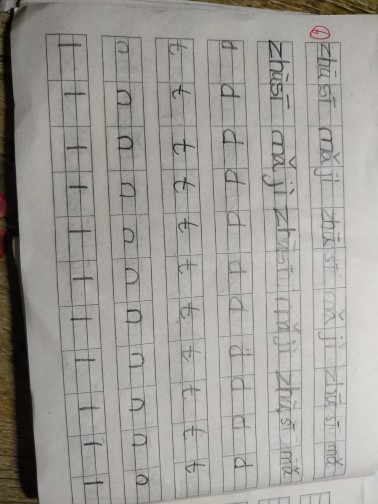 zhūsī mǎjì zhūsī mǎjì zhūsī mǎ
zhūsī mǎjì zhūsī mǎjì zhūsī mǎ
d d d d d d d d d d d
t t t t t t t t t t t
n n n n n n n n n n n
l l l l l l l l l l l